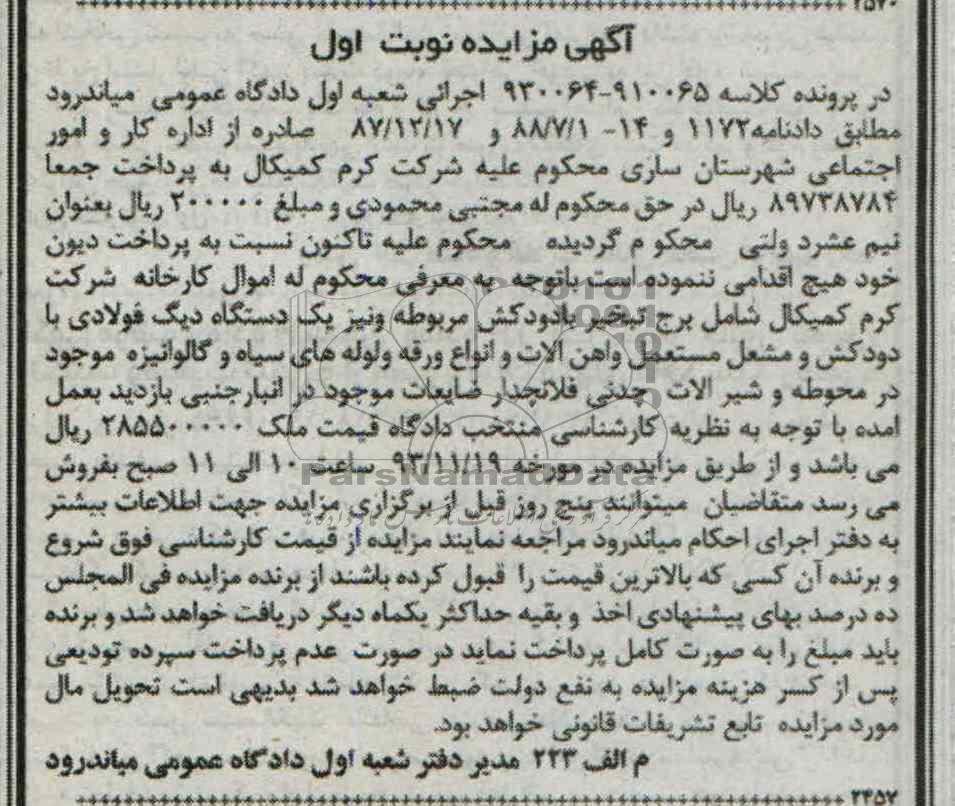 ۲۵۲۰
آگهی مزایده نوبت اول
در پرونده کلاسه ۹۱۰۰۶۵-۹۳۰۰۶۴ اجرائی شعبه اول دادگاه عمومی میاندرود
مطابق دادنامه۱۱۷۲ و ۱۴- ۸۸/۷/۱ و ۸۷/۱۲/۱۷ صادره از اداره کار و امور
اجتماعی شهرستان ساری محکوم علیه شرکت کرم کمیکال به پرداخت جمعا
۸۹۷۳۸۷۸۴ ریال در حق محکوم له مجتبی محمودی و مبلغ ۲۰۰۰۰۰ ریال بعنوان
نیم عشرد ولتی محکو م گردیده محکوم علیه تاکنون نسبت به پرداخت دیون
خود هیچ اقدامی ننموده است باتوجه به معرفی محکوم له اموال کارخانه شرکت
کرم کمیکال شامل برج تبخیر بادودکش مربوطه ونیز یک دستگاه دیگ فولادی با
دودکش و مشعل مستعمل واهن الات و انواع ورقه ولوله های سیاه و گالوانیزه موجود
در محوطه و شیر الات چدنی فلانچدار ضایعات موجود در انبارجنبی بازدید بعمل
امده با توجه به نظریه کارشناسی منتخب دادگاه قیمت ملک ۲۸۵۵۰۰۰۰۰ ریال
می باشد و از طریق مزایده در مورخه ۹۳/۱۱/۱۹ ساعت ۱۰ الی ۱۱ صبح بفروش
می رسد متقاضیان میتوانند پنج روز قبل از برگزاری مزایده جهت اطلاعات بیشتر
به دفتر اجرای احکام میاندرود مراجعه نمایند مزایده از قیمت کارشناسی فوق شروع
و برنده آن کسی که بالاترین قیمت را قبول کرده باشند از برنده مزایده فی المجلس
ده درصد بهای پیشنهادی اخذ و بقیه حداکثر یکماه دیگر دریافت خواهد شد و برنده
باید مبلغ را به صورت کامل پرداخت نماید در صورت عدم پرداخت سپرده تودیعی
پس از کسر هزینه مزایده به نفع دولت ضبط خواهد شد بدیهی است تحویل مال
مورد مزایده تابع تشریفات قانونی خواهد بود.
م الف ۲۲۳ مدیر دفتر شعبه اول دادگاه عمومی میاندرود
۲۴۵۲
ParsNamadData